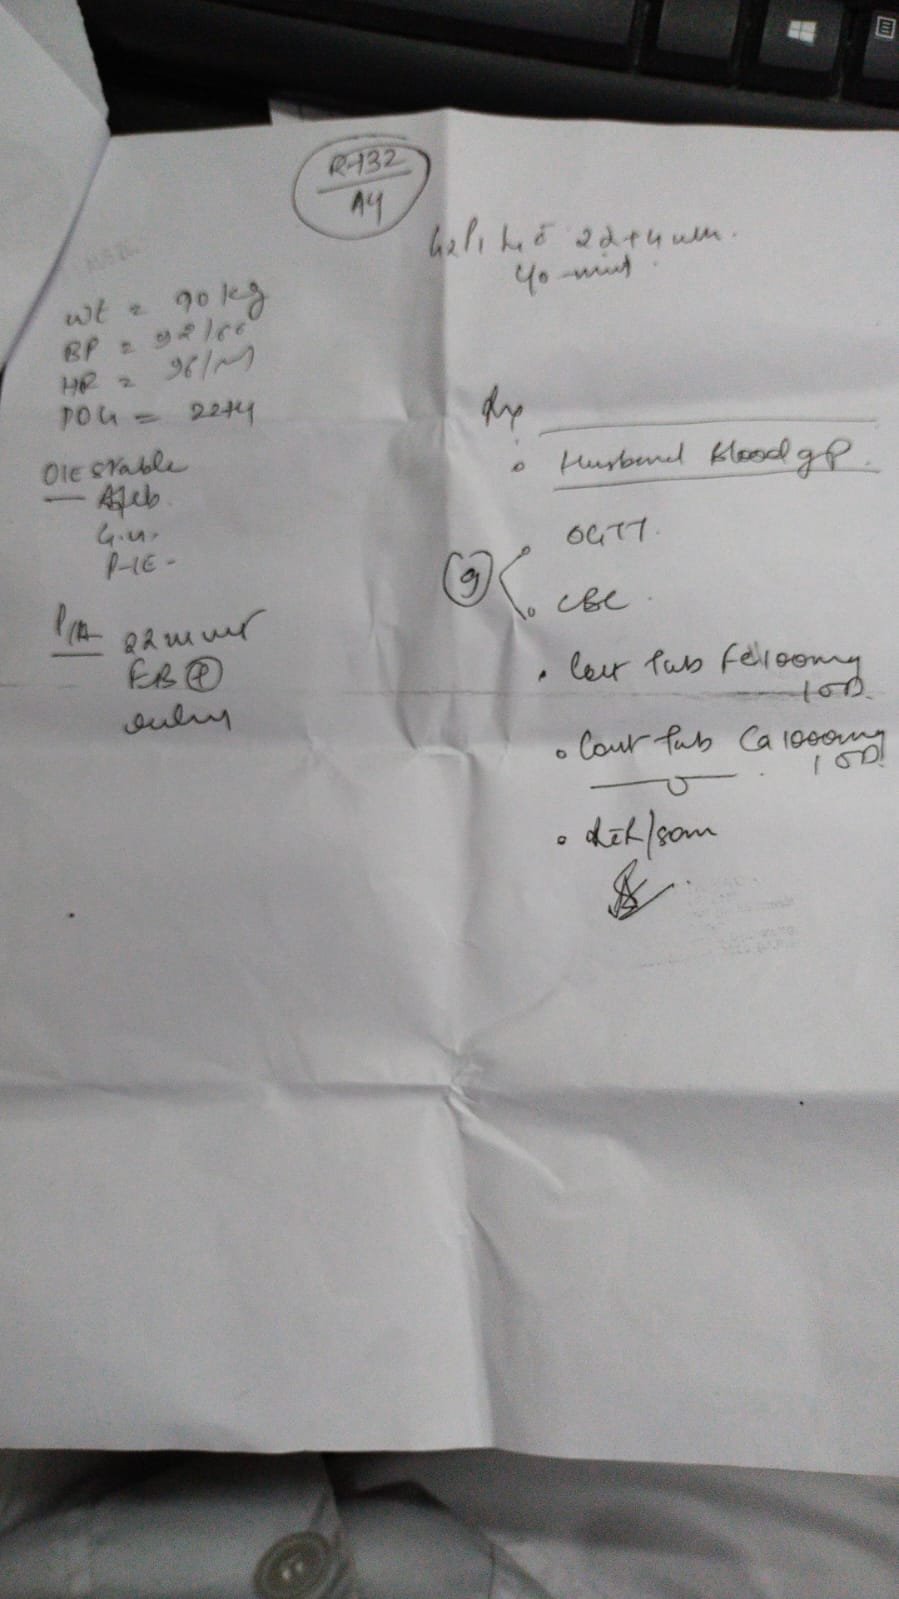 R-132
A4
G2P1L1 c̄ 22+4 wks.
wt = 90 kg
BP = 92/66
HR = 96/m
POG = 22+4
O/E Stable
Afeb.
P-IE-
P/A
FB ⊕
Rx
Husband Blood gp.
OGTT.
CBC.
Cont Tab Fe 100mg
1 OD.
Cont Tab Ca 1000mg
1 OD.